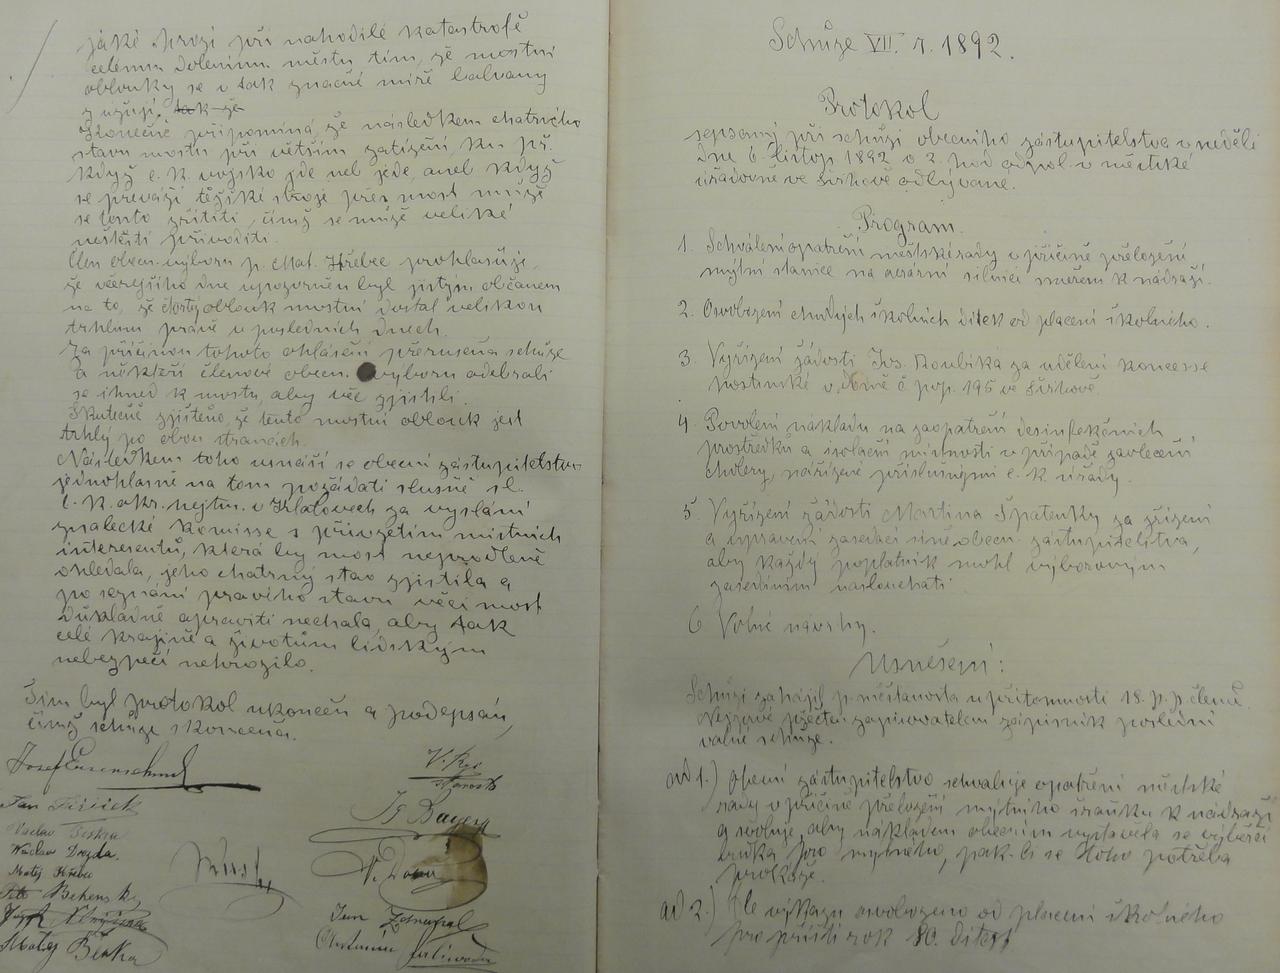 jaké hrozí při nahodilé katastrofě
celému dolenímu městu tím, že mostní
oblouky se v tak značné míře balvany
zužují, tak že
Konečně připomíná, že následkem chatrného
stavu mostu při větším zatížení, ku př.
když c. k. vojsko jde neb jede, aneb když
se převáží těžké stroje přes most může
se tento zřítiti, čímž se může veliké
neštěstí přivoditi.
Člen obecn. výboru p. Mat. Hřebec prohlašuje,
že včerejšího dne upozorněn byl jistým občanem
na to, že čtvrtý oblouk mostní dostal velikou
trhlinu právě v posledních dnech.
Za příčinou tohoto ohlášení přerušena schůze
a někteří členové obecn. výboru odebrali
se ihned k mostu, aby věc zjistili.
Skutečně zjištěno, že tento mostní oblouk jest
trhlý po obou stranách.
Následkem toho usnáší se obecní zastupitelstvo
jednohlasně na tom požádati slušně sl.
c. k. okr. hejtm. v Klatovech za vyslání
znalecké komisse s přivzetím místních
interesentů, která by most neprodleně
ohledala, jeho chatrný stav zjistila a
po seznání pravého stavu věci most
důkladně opraviti nechala, aby tak
celé krajině a životům lidským
nebezpečí nehrozilo.
Tím byl protokol ukončen a podepsán,
čímž schůze skončena.
starosta
Jan
Václav Beška
Václav Drozda
Matěj Hřebec
Matěj Beška
Schůze VII. r. 1892.
Protokol
sepsaný při schůzi obecního zástupitelstva v neděli
dne 6. listop. 1892 o 2. hod odpol. v městské
úřadovně ve Švihově odbývané.
Program.
1. Schválení opatření městské rady v příčině přeložení
mýtní stanice na aerární silnici směrem k nádraží.
2. Osvobození chudých školních dítek od placení školného.
3. Vyřízení žádosti Jos. Roubíka za udělení koncesse
hostinské v domě č pop. 195 ve Švihově.
4. Povolení nákladu na zaopatření desinfekčních
prostředků a isolační místnosti v případě zavlečení
cholery, nařízené příslušnými c. k. úřady.
5. Vyřízení žádosti Martina Špatenky za zřízení
a upravení zasedací síně obecn. zástupitelstva,
aby každý poplatník mohl výborovým
zasedáním naslouchati
6 Volné návrhy.
Usnešení:
Schůzi zahájil p. měštanosta u přítomnosti 18. p. p. členů.
Nejprve přečten zapisovatelem zápisník poslední
valné schůze.
ad 1.) Obecní zástupitelstvo schvaluje opatření městské
rady v příčině přeložení mýtního šraňku k nádraží
a svoluje, aby nákladem obecním vystavěla se výběrčí
budka pro mýtného, pak-li se toho potřeba
prokáže.
ad 2.) Dle výkazu osvobozeno od placení školného
pro příští rok 80. dítek